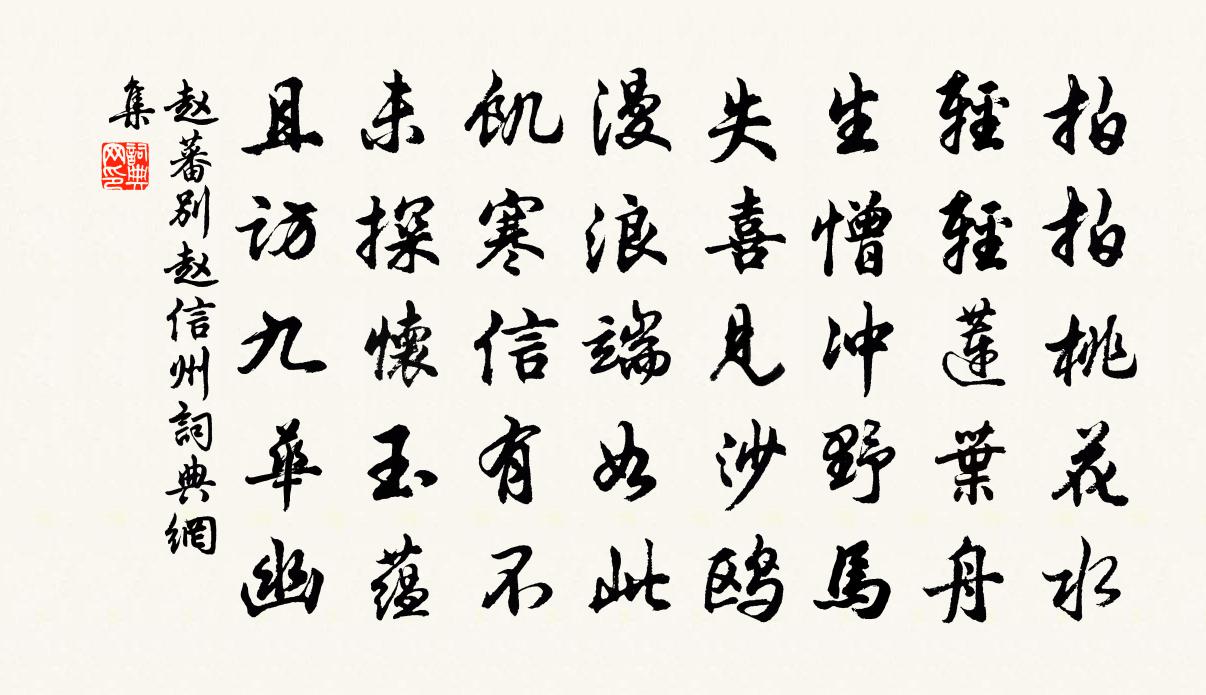 拍拍桃花水
輕輕蓮葉舟
生憎沖野馬
失喜見沙鴎
漫浪端如此
飢寒信有不
未探懷玉蘊
且訪九華幽
赵蕃别赵信州詞典網
集
詞典網印